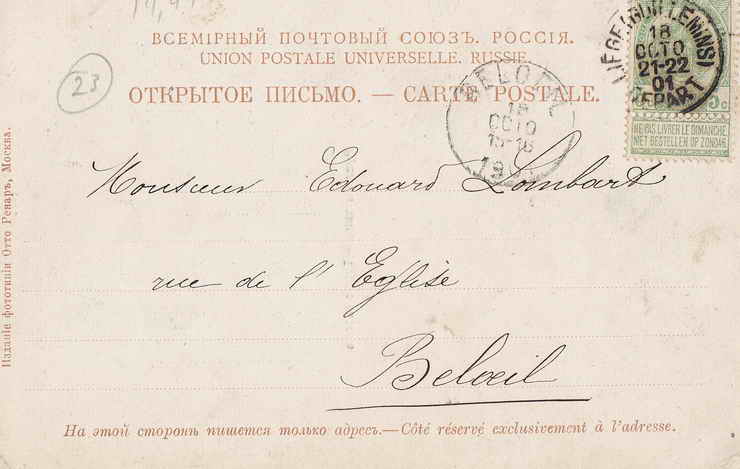 ВСЕМІРНЫЙ ПОЧТОВЫЙ СОЮЗЪ. РОССІЯ.
UNION POSTALE UNIVERSELLE. RUSSIE.
23
ОТКРЫТОЕ ПИСЬМО. — CARTE POSTALE.
LIÉGE (GUILLEMINS)
18
OCTO
21-22
01
DEPART
5c
NE PAS LIVRER LE DIMANCHE
NIET BESTELLEN OP ZONDAG
BELOEIL
OCTO
Monsieur Edouard Lombart
rue de l'Eglise
Beloeil
Изданіе фототипіи Отто Ренаръ, Москва.
На этой сторонѣ пишется только адресъ.—Côté réservé exclusivement à l'adresse.